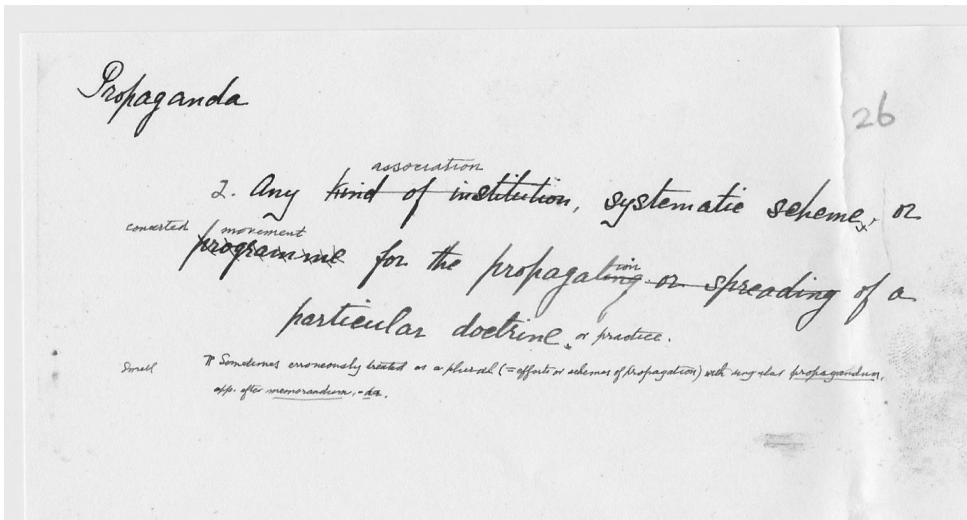 Propaganda
26
association
2. Any kind of institution, systematic scheme, or
concerted movement
programme for the propagating ion or spreading of a
particular doctrine, or practice.
Small ¶ Sometimes erroneously treated as a plural (= efforts or schemes of propagation) with singular propagandum,
app. after memorandum, -da.